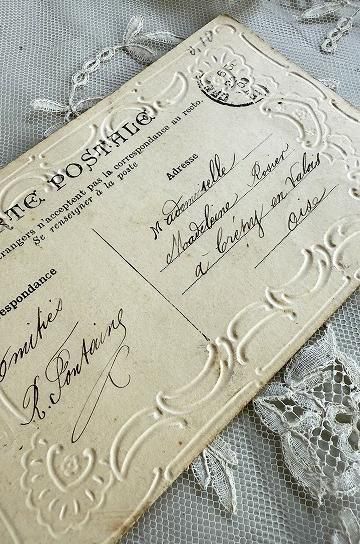 TE POSTALE
trangers n'acceptent pas la correspondance au recto.
Se renseigner à la poste
respondance
Adresse
Mademoiselle
Madeleine Rosier
à Crépy en Valois
Oise
Amitiés
R. Fontaine